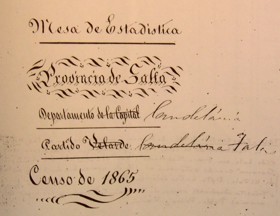 Mesa de Estadistica
Provincia de Salta
Departamento de la Capital Candelária
Partido Velarde Candelária
Censo de 1865